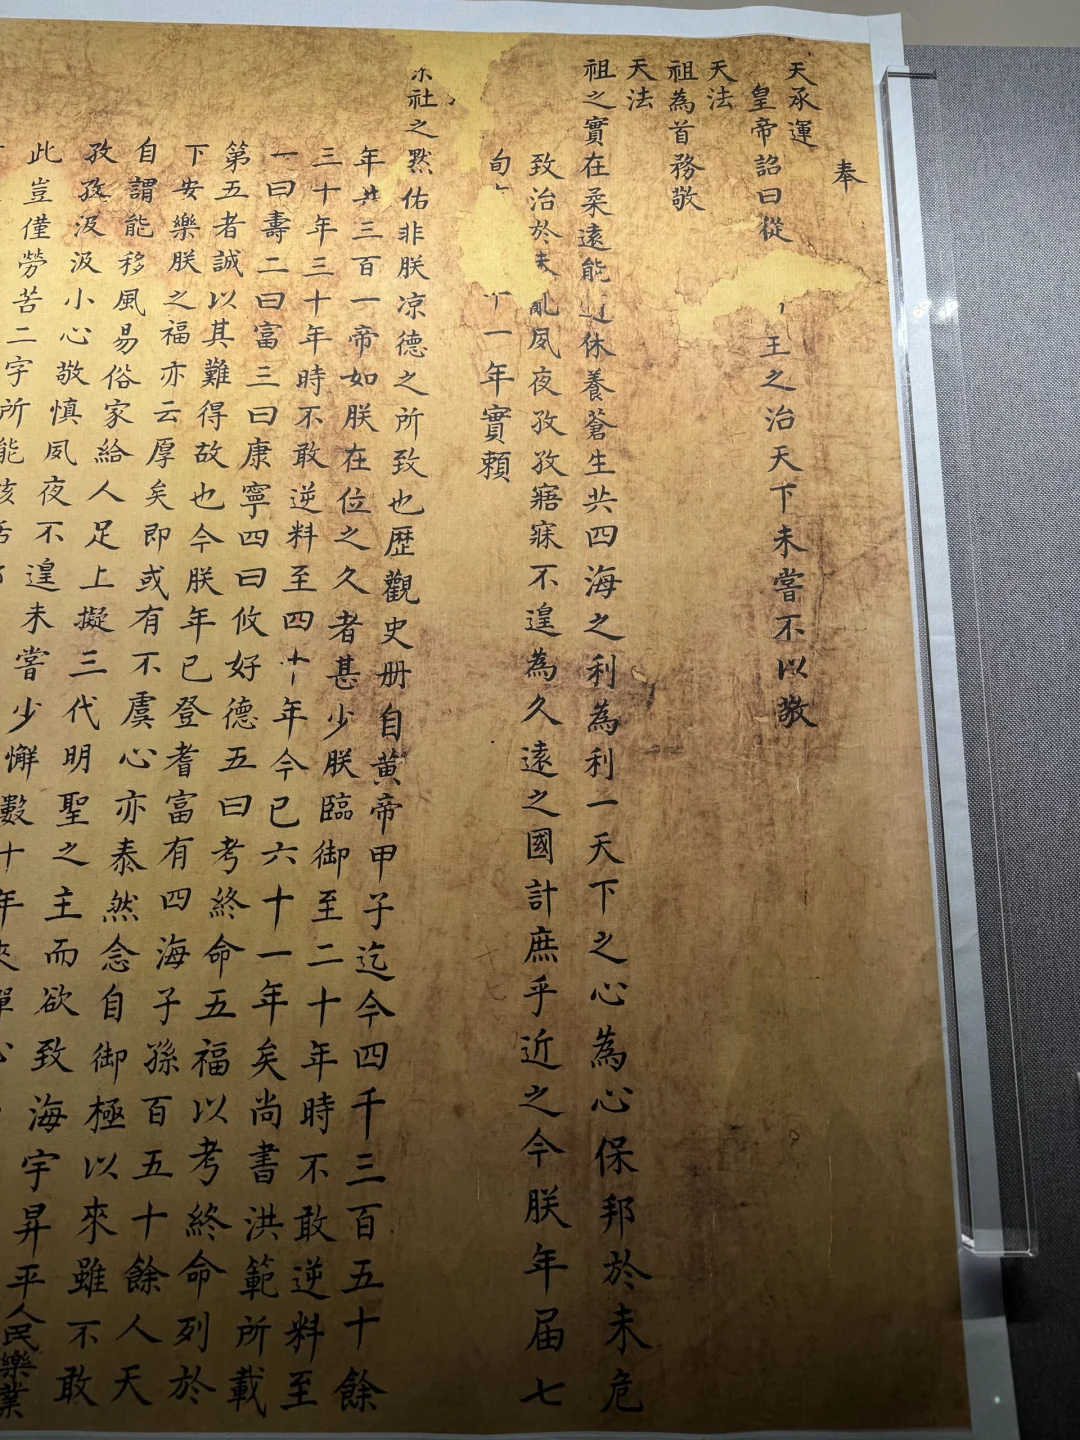 奉
天承運
皇帝詔曰從王之治天下未嘗不以敬
天法
祖為首務敬
天法
祖之實在柔遠能休養蒼生共四海之利為利一天下之心為心保邦於未危
致治於未亂夙夜孜孜寤寐不遑為久遠之國計庶乎近之今朕年届七
旬一年實賴
社之默佑非朕凉德之所致也歴觀史册自黄帝甲子迄今四千三百五十餘
年共三百一帝如朕在位之久者甚少朕臨御至二十年時不敢逆料至
三十年三十年時不敢逆料至四十年今已六十一年矣尚書洪範所載
一曰壽二曰富三曰康寧四曰攸好德五曰考終命五福以考終命列於
第五者誠以其難得故也今朕年已登耆富有四海子孫百五十餘人天
下安樂朕之福亦云厚矣即或有不虞心亦泰然念自御極以來雖不敢
自謂能移風易俗家給人足上擬三代明聖之主而欲致海宇昇平人民樂業
孜孜汲汲小心敬慎夙夜不遑未嘗少懈數十年來殫心
此豈僅勞苦二字所能該括